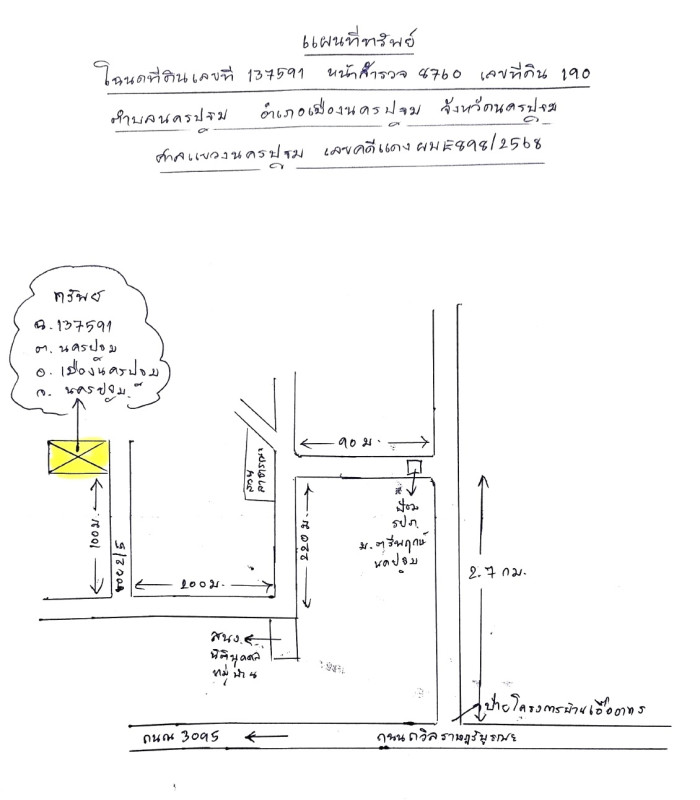 แผนที่ทรัพย์
โฉนดที่ดินเลขที่ 137591 หน้าสำรวจ 8760 เลขที่ดิน 190
ตำบลนครปฐม อำเภอเมืองนครปฐม จังหวัดนครปฐม
ศาลแขวงนครปฐม เลขคดีแดง ผบE898/2568
ทรัพย์
ฉ.137591
ต. นครปฐม
อ. เมืองนครปฐม
จ. นครปฐม
90 ม.
ป้อม
รปภ.
ม. ตรีพฤกษ์
นครปฐม
100 ม.
ซอย 2/5
200 ม.
220 ม.
2.7 กม.
สนง.
นิติบุคคล
หมู่บ้าน
ป้ายโครงการบ้านเอื้ออาทร
ถนน 3095
ถนนถวิลราษฎร์บูรณะ